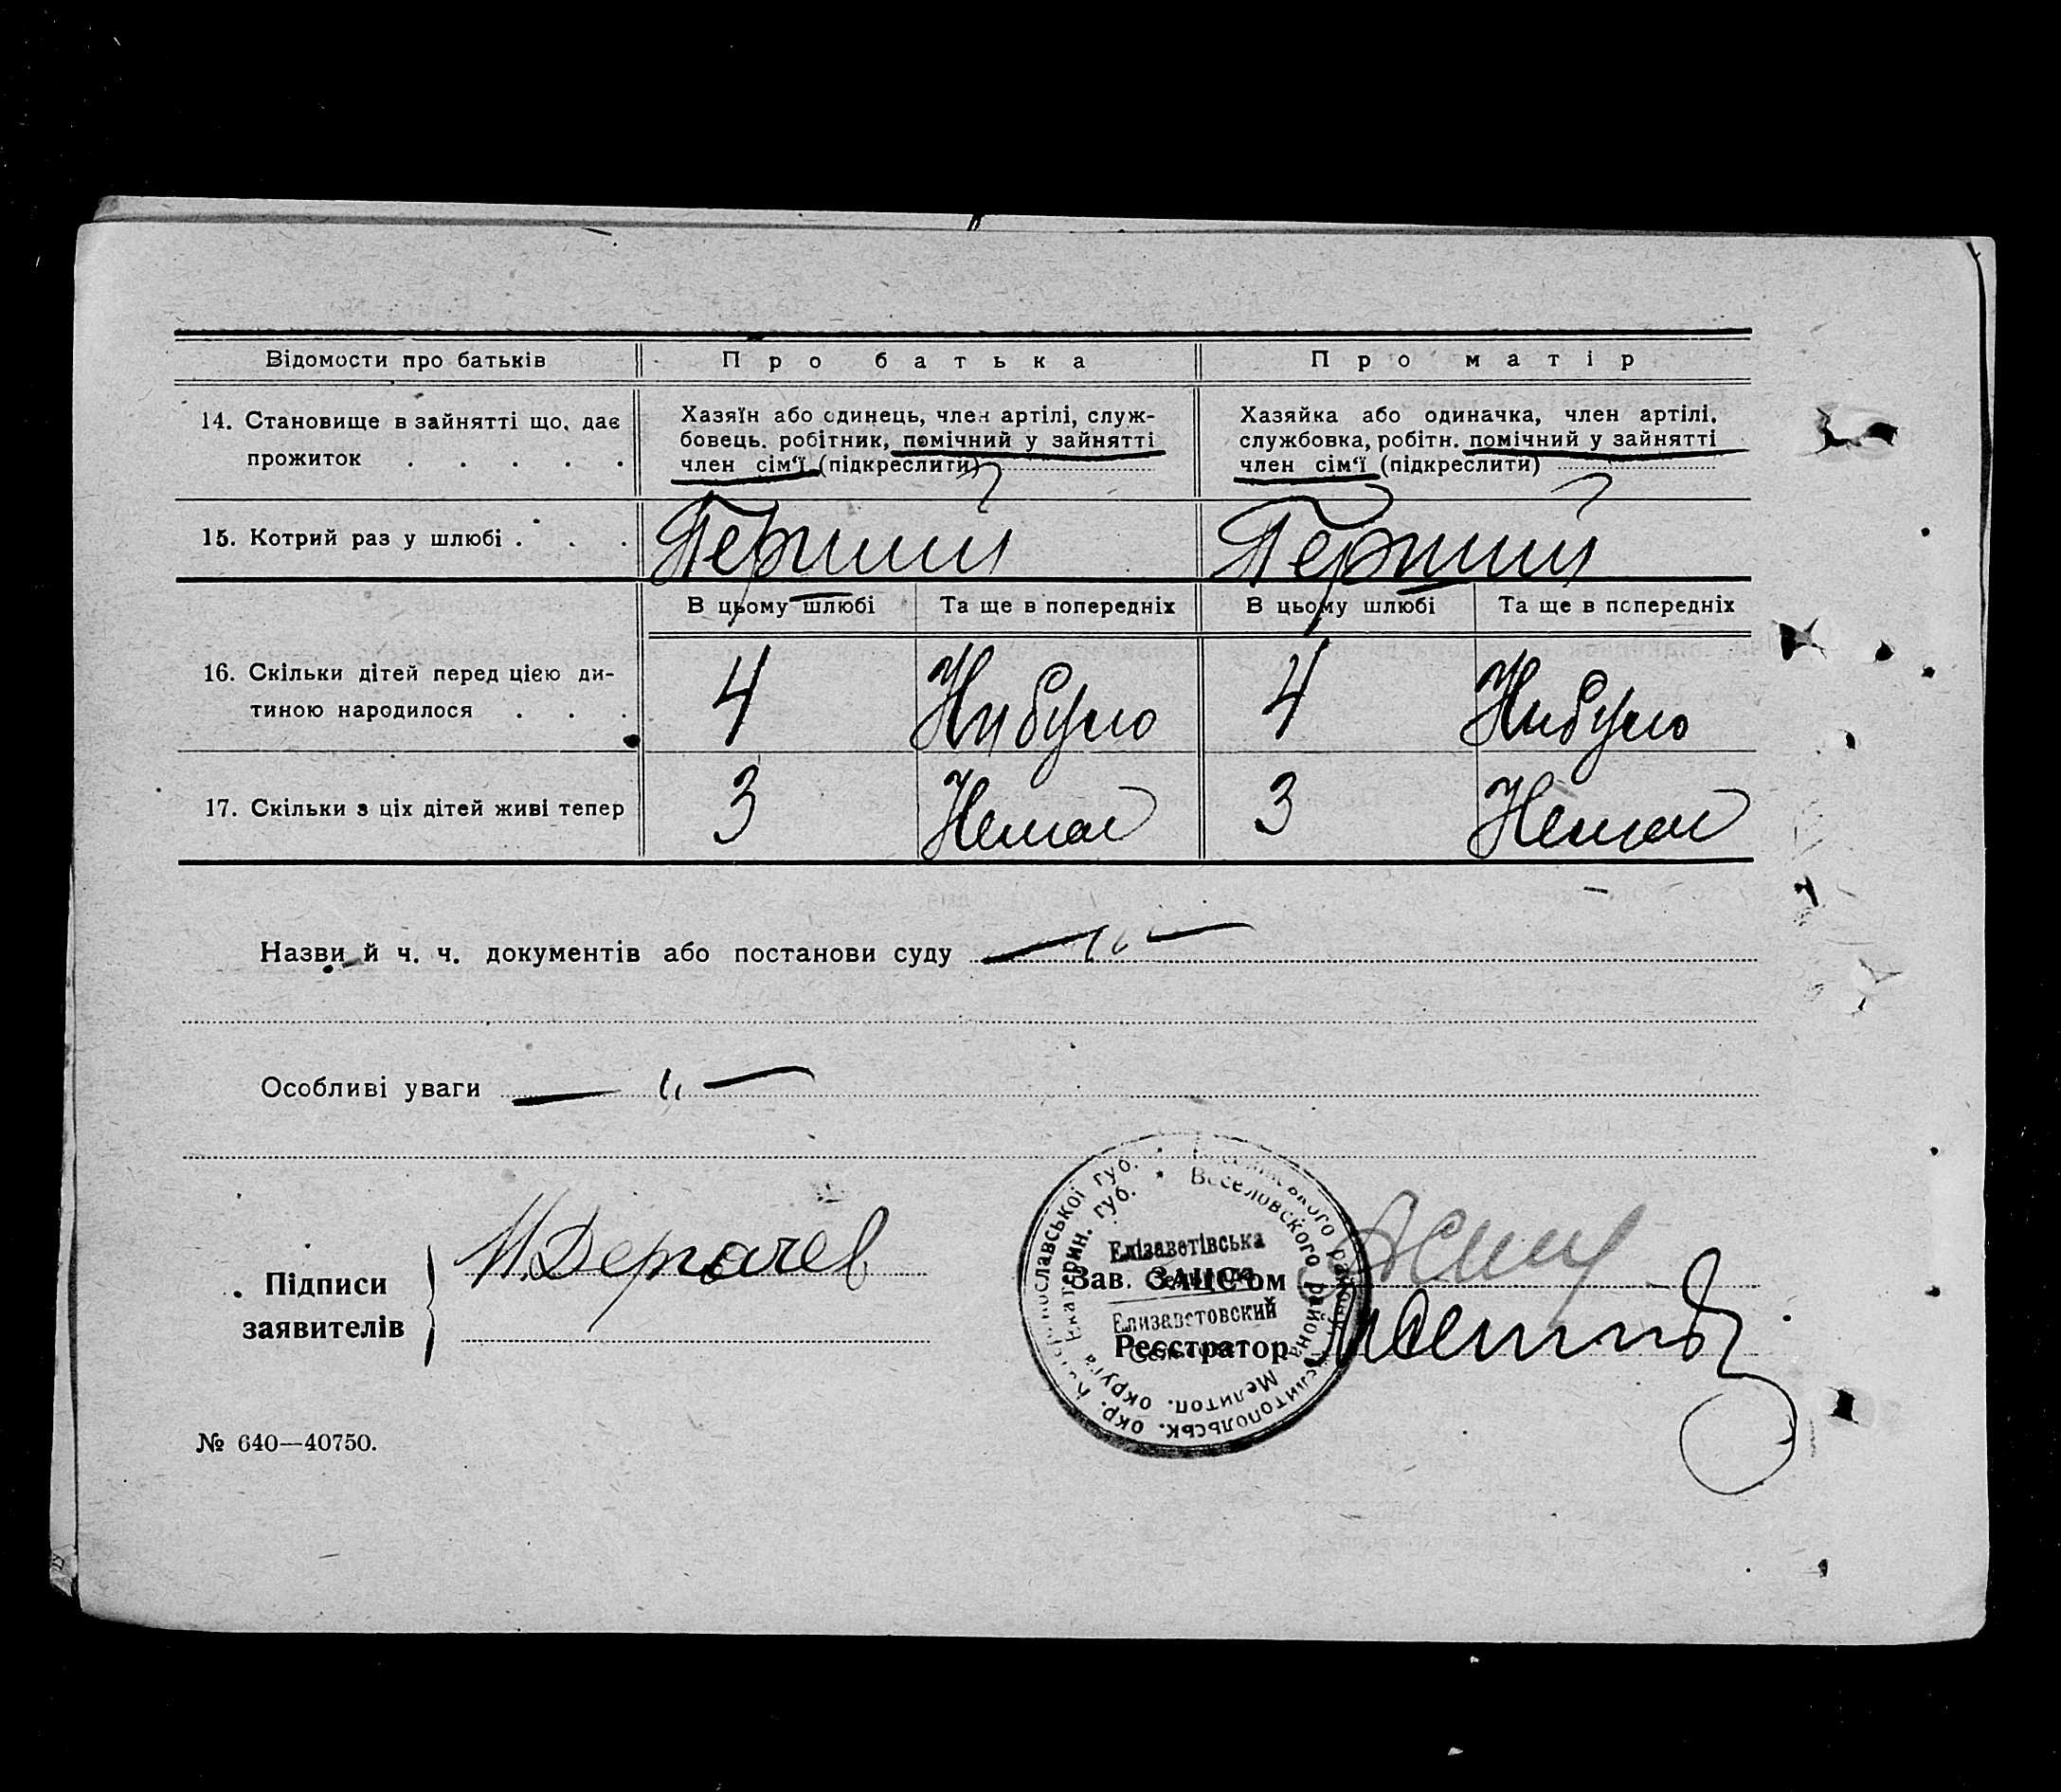 Відомости про батьків Про батька Про матір
14. Становище в зайнятті що, дає
прожиток . . . . .
Хазяїн або одинець, член артілі, служ-
бовець. робітник, помічний у зайнятті
член сім‘ї (підкреслити)
Хазяйка або одиначка, член артілі,
службовка, робітн. помічний у зайнятті
член сім‘ї (підкреслити)
15. Котрий раз у шлюбі . . . Перший Перший
В цьому шлюбі Та ще в попередніх В цьому шлюбі Та ще в попередніх
16. Скільки дітей перед цією ди-
тиною народилося . . .
4 Нибуло 4 Нибуло
17. Скільки з ціх дітей живі тепер 3 Немає 3 Немає
Назви й ч. ч. документів або постанови суду — " —
Особливі уваги — " —
Підписи
заявителів
И. Дергачев
Зав. ЗАЦС‘ом
Реєстратор
Єлізаветівська
Елизаветовский
Веселовского района Мелитоп. округа Екатерин. губ.
№ 640—40750.